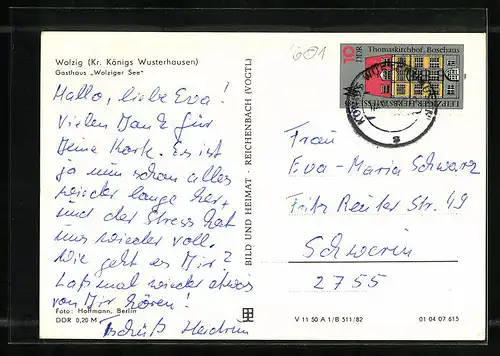 Wolzig (Kr. Königs Wusterhausen)
Gasthaus „Wolziger See“
Hallo, liebe Eva!
Vielen Dank für
Deine Karte. Es ist
ja nun schon alles
wieder lange her,
und der Stress hat
uns wieder voll.
Wie geht es Dir?
Laß mal wieder etwas
von Dir hören!
Foto: Hoffmann, Berlin
DDR 0,20 M
Tschüß Heidrun
BILD UND HEIMAT · REICHENBACH (VOGTL)
681
10
DDR
Thomaskirchhof, Bosehaus
LEIPZIGER HERBSTMESSE
s
Frau
Eva-Maria Schwarz
Fritz Reuter Str. 49
Schwerin
2755
V 11 50 A 1/B 511/82
01 04 07 615